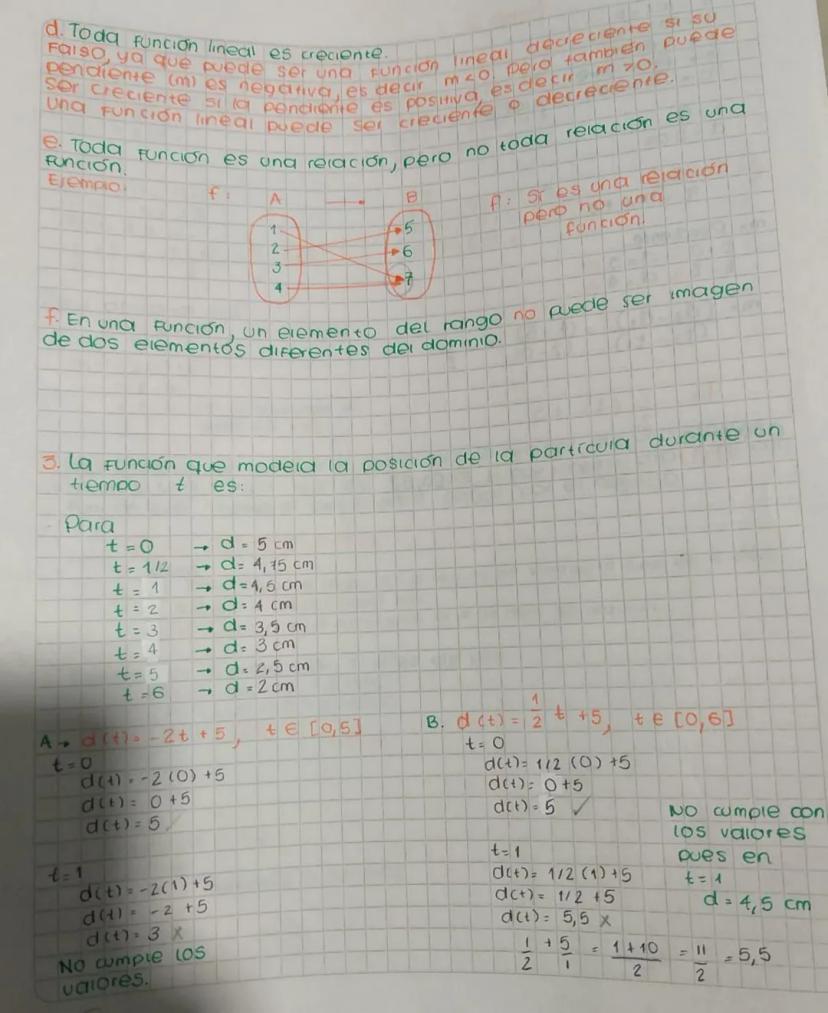 d. Toda función lineal es creciente.
Falso, ya que puede ser una función lineal decreciente si su
pendiente (m) es negativa, es decir m<0 pero también puede
ser creciente si la pendiente es positiva, es decir m>0.
Una función lineal puede ser creciente o decreciente.
e. Toda función es una relación, pero no toda relación es una
función.
Ejemplo:
f: A → B
f: Si es una relación
pero no una
función.
1 5
2 6
3 7
4
f. En una función, un elemento del rango no puede ser imagen
de dos elementos diferentes del dominio.
3. La función que modela la posición de la partícula durante un
tiempo t es:
Para
t = 0 → d = 5 cm
t = 1/2 → d = 4,75 cm
t = 1 → d = 4,5 cm
t = 2 → d = 4 cm
t = 3 → d = 3,5 cm
t = 4 → d = 3 cm
t = 5 → d = 2,5 cm
t = 6 → d = 2 cm
A → d(t) = -2t + 5, t ∈ [0,5]
t = 0
d(t) = -2(0) + 5
d(t) = 0 + 5
d(t) = 5
t = 1
d(t) = -2(1) + 5
d(t) = -2 + 5
d(t) = 3 x
No cumple los
valores.
B. d(t) = 1/2 t + 5, t ∈ [0,6]
t = 0
d(t) = 1/2 (0) + 5
d(t) = 0 + 5
d(t) = 5 ✓
t = 1
d(t) = 1/2 (1) + 5
d(t) = 1/2 + 5
d(t) = 5,5 x
1/2 + 5/1 = 1+10/2 = 11/2 = 5,5
NO cumple con
los valores
pues en
t = 1
d = 4,5 cm